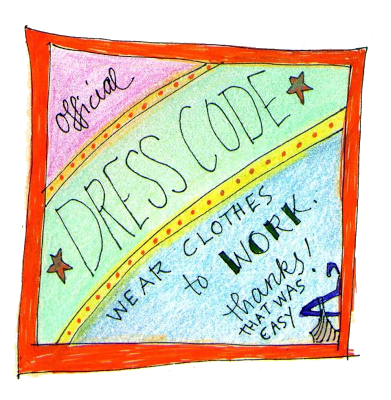 official
DRESS CODE
WEAR CLOTHES
to WORK.
thanks!
THAT WAS
EASY